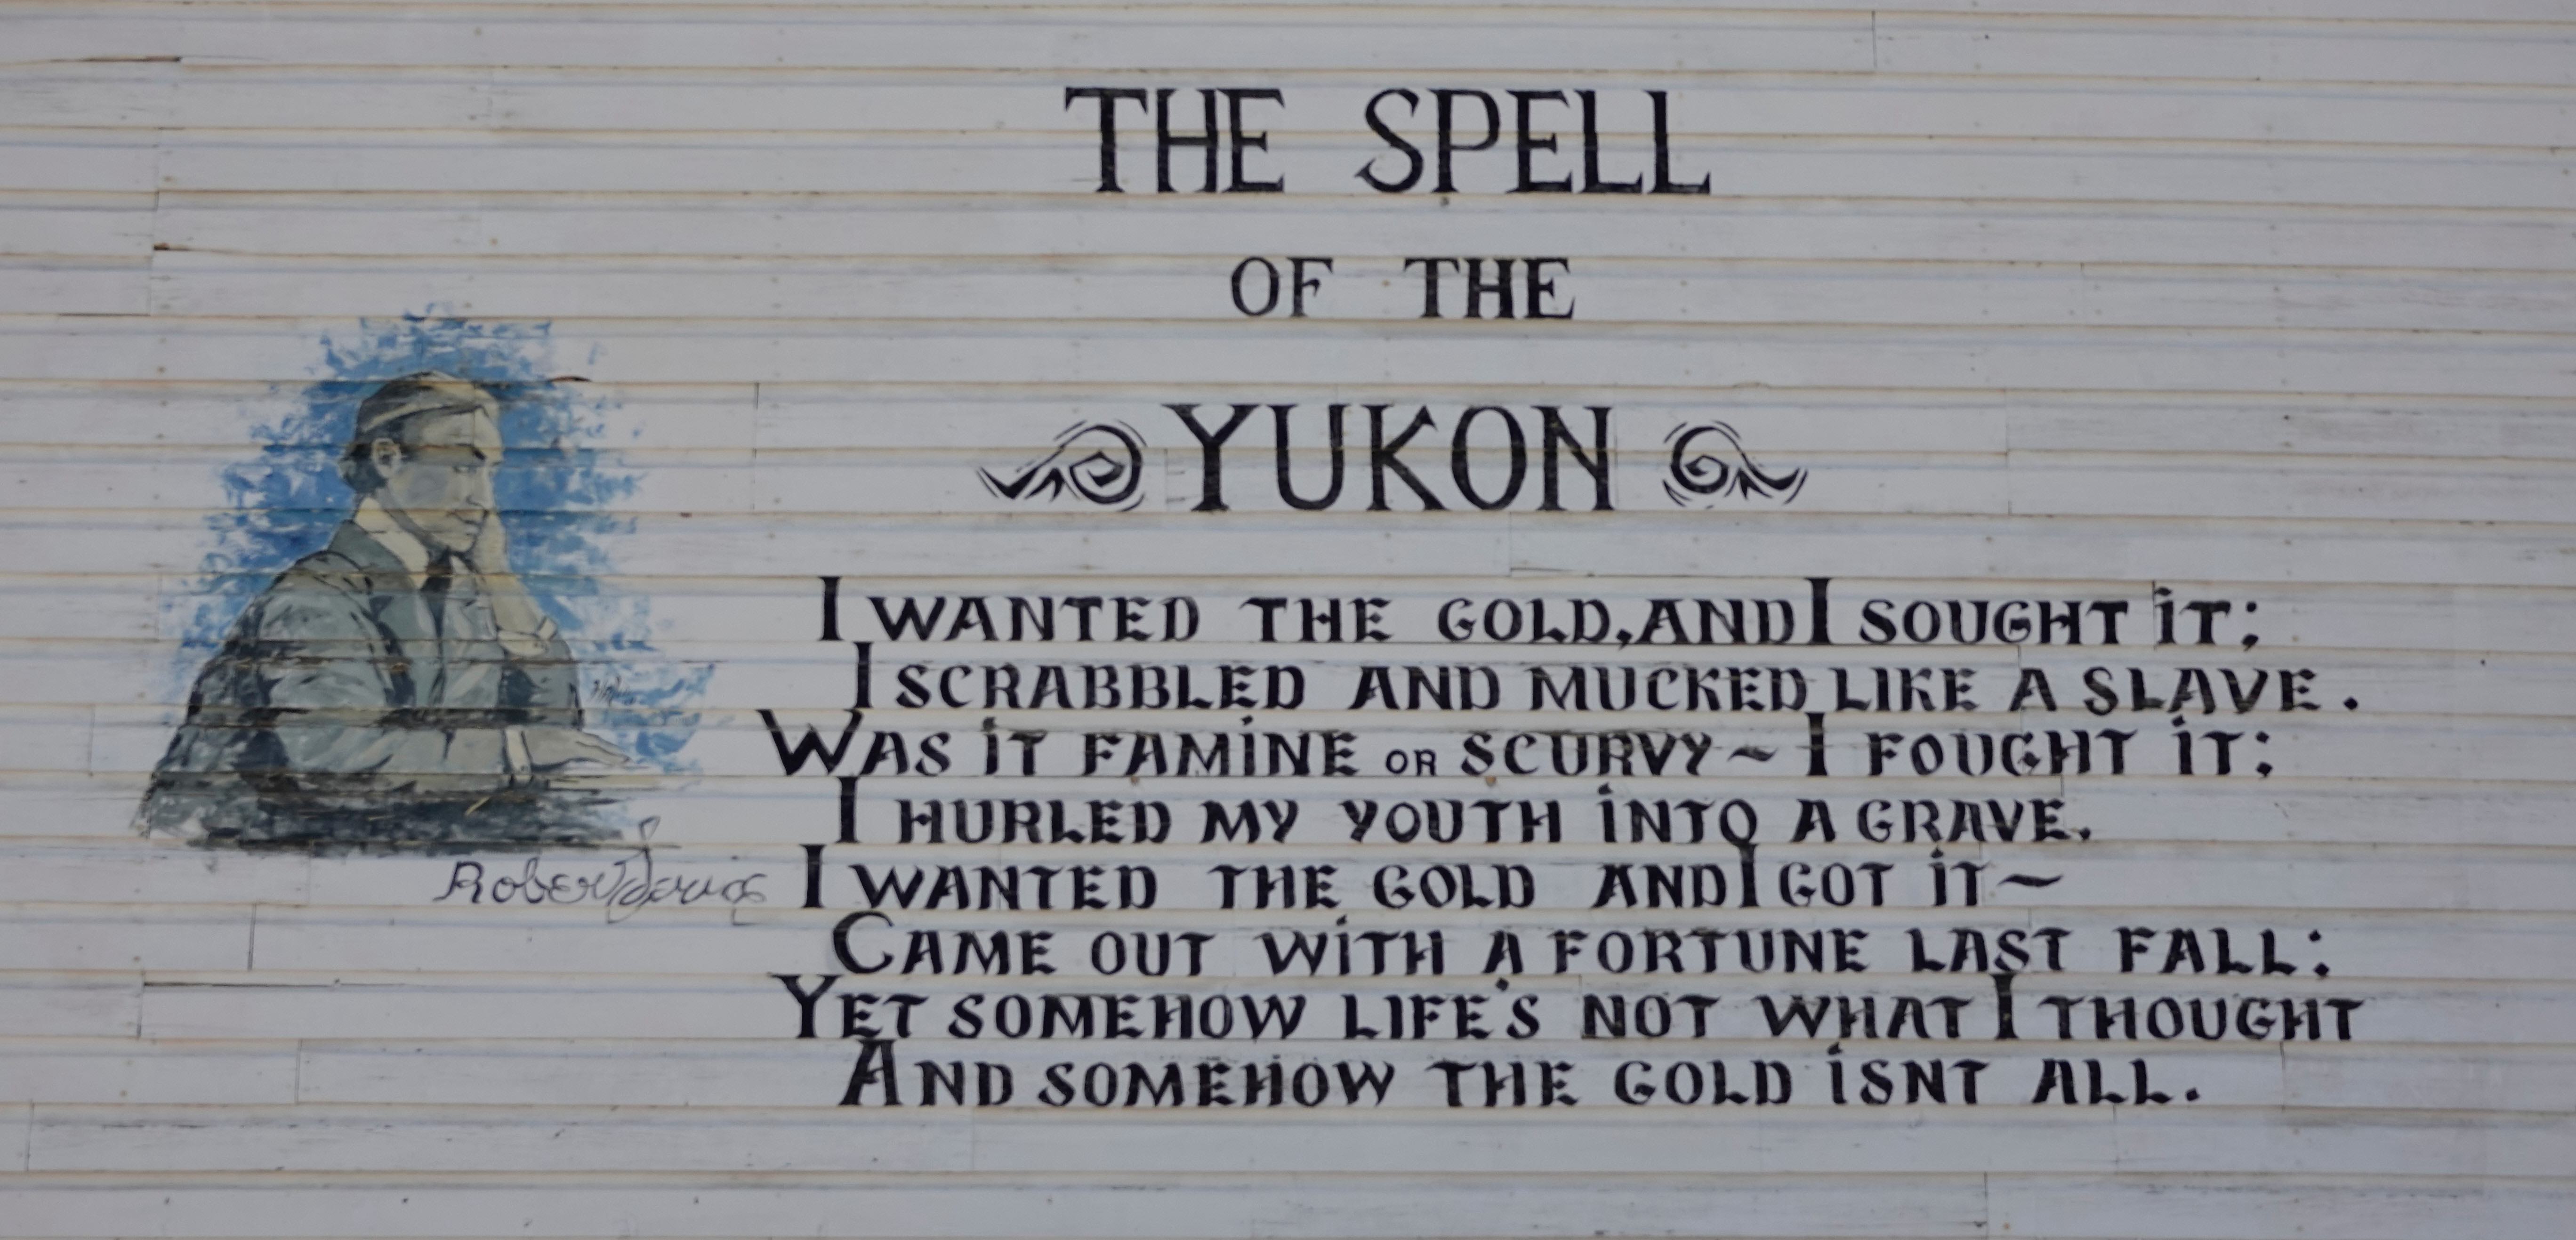 THE SPELL
OF THE
YUKON
I WANTED THE GOLD, AND I SOUGHT iT;
I SCRABBLED AND MUCKED LIKE A SLAVE.
WAS iT FAMiNE OR SCURVY~I FOUGHT iT;
I HURLED MY YOUTH iNTO A GRAVE.
I WANTED THE GOLD AND I GOT iT~
CAME OUT WiTH A FORTUNE LAST FALL:
YET SOMEHOW LIFE'S NOT WHAT I THOUGHT
AND SOMEHOW THE GOLD iSNT ALL.
Robert Service